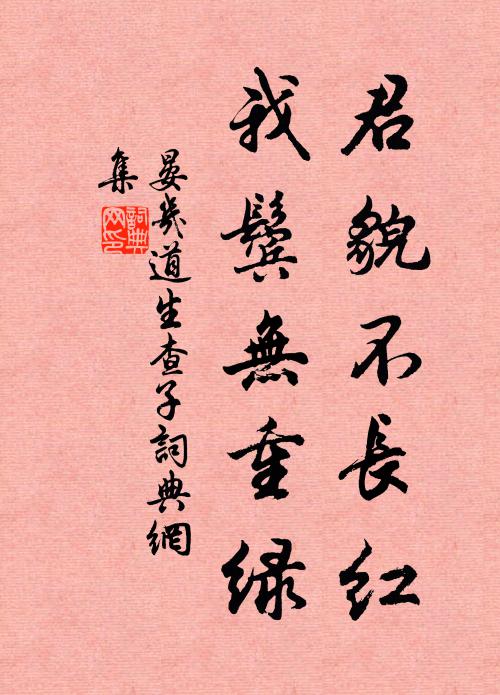 君貌不長紅
我鬢無重綠
晏幾道生查子詞典網
集
詞典网印